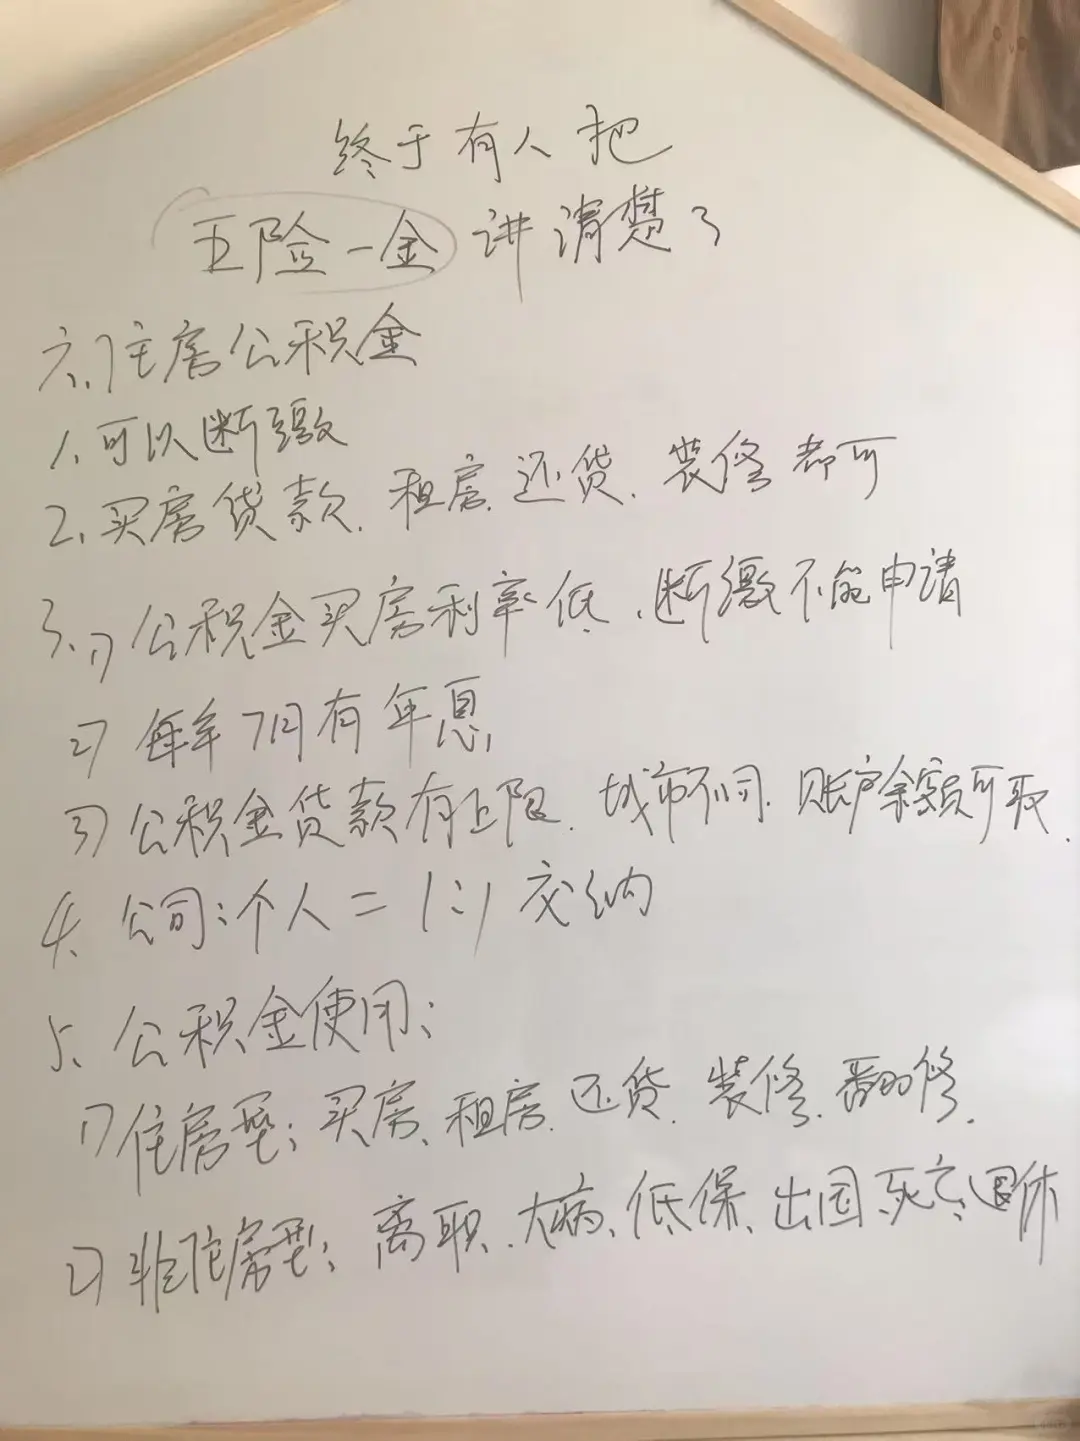 终于有人把
五险一金讲清楚了
六、住房公积金
1、可以断缴
2、买房贷款、租房、还贷、装修都可
3、1)公积金买房利率低、断缴不能申请
2)每年7月有年息
3)公积金贷款有上限、城市不同、账户余额可取、
4、公司:个人=1:1交纳
5、公积金使用:
1)住房型:买房、租房、还贷、装修、翻修、
2)非住房型:离职、大病、低保、出国、死亡、退休